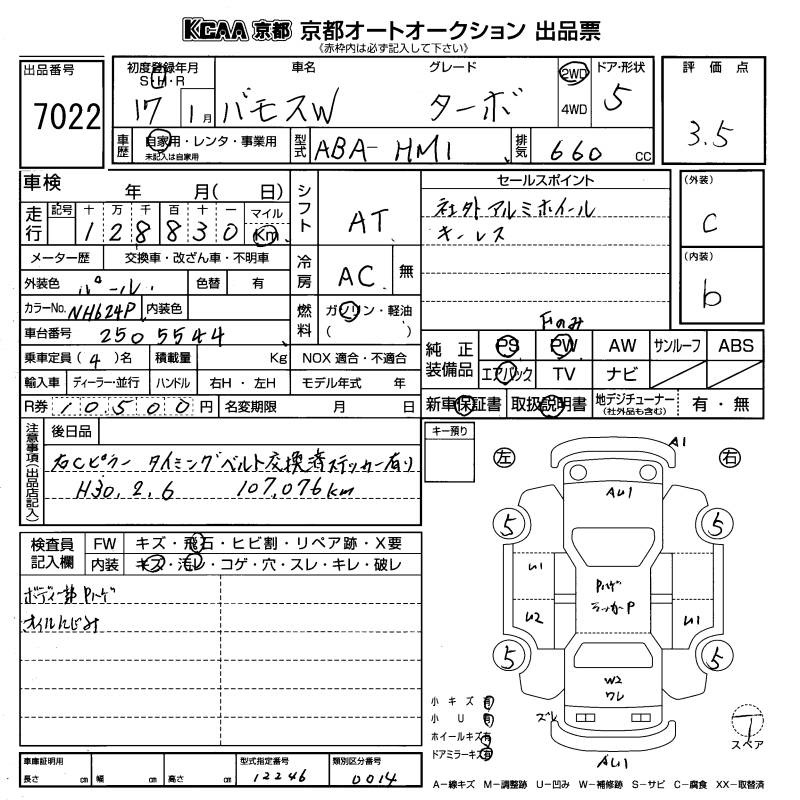 KCAA 京都 京都オートオークション 出品票
《赤枠内は必ず記入して下さい》
出品番号
7022
初度登録年月 車名 グレード ドア・形状
S・H・R
17 1月 バモスW ターボ 2WD 4WD 5
評価点
3.5
車歴 自家用・レンタ・事業用
未記入は自家用
型式 ABA-HM1 排気 660 cc
車検 年 月( 日)
走行 記号 十 万 千 百 十 一 マイル
1 2 8 8 3 0 Km
メーター歴 交換車・改ざん車・不明車
外装色 パール 色替 有
カラーNo. NH624P 内装色
車台番号 2505544
乗車定員(4)名 積載量 Kg
輸入車 ディーラー・並行 ハンドル 右H・左H
R券 10,500円 名変期限 月 日
シフト AT
冷房 AC 無
燃料 ガソリン・軽油
( )
NOX 適合・不適合
モデル年式 年
セールスポイント
社外アルミホイール
キーレス
(外装)
C
(内装)
b
Fのみ
純正装備品 PS PW AW サンルーフ ABS
エアバック TV ナビ
新車保証書 取扱説明書 地デジチューナー(社外品も含む) 有・無
注意事項(出品店記入)
後日品
右Cピラー タイミングベルト交換済ステッカー有り
H30.2.6 107,076km
キー預り
検査員記入欄 FW キズ・飛石・ヒビ割・リペア跡・X要
内装 キズ・汚レ・コゲ・穴・スレ・キレ・破レ
ボディー第Pハゲ
オイルにじみ
左 右
A1
AU1
5 5
U1
Pハゲ
ラッカーP
U2 U1
5 5
W2
ワレ
ズレ
AU1
小キズ 有
小U 有
ホイールキズ 有
ドアミラーキズ 有
スペア
車庫証明用
長さ cm 幅 cm 高さ cm
型式指定番号
12246
類別区分番号
0014
A−線キズ M−調整跡 U−凹み W−補修跡 S−サビ C−腐食 XX−取替済